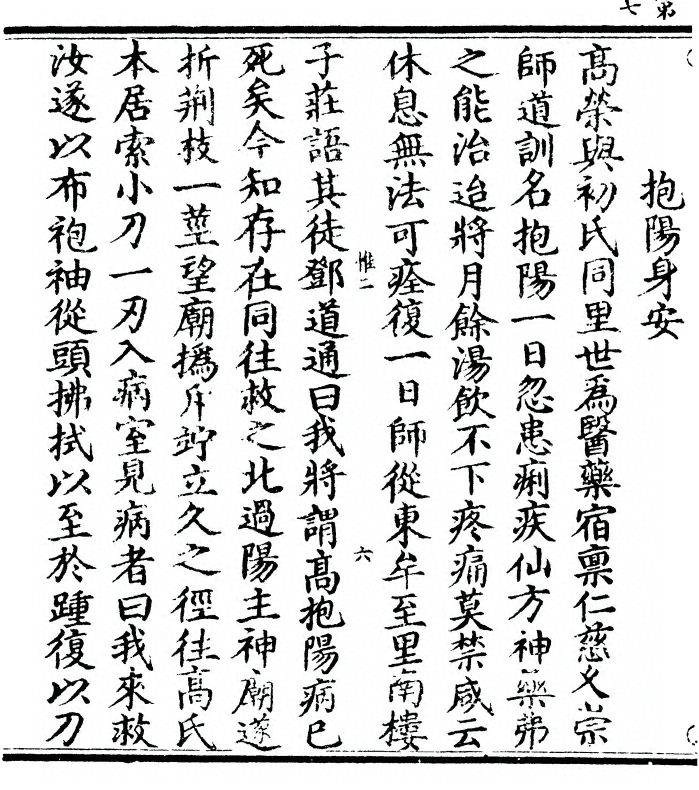 第
七
抱陽身安
高榮與初氏同里世爲醫藥宿禀仁慈父崇
師道訓名抱陽一日忽患痢疾仙方神藥弗
之能治迨將月餘湯飲不下疼痛莫禁咸云
休息無法可痊復一日師從東牟至里南樓
惟二 六
子莊語其徒鄧道通曰我將謂高抱陽病已
死矣今知存在同往救之北過陽主神廟遂
折荆枝一莖望廟撝斥竚立久之徑往高氏
本居索小刀一刃入病室見病者曰我來救
汝遂以布袍袖從頭拂拭以至於踵復以刀